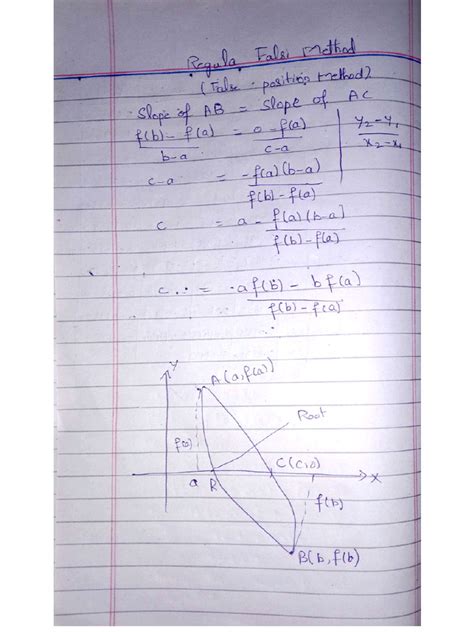 Regula Falsi Method
(False-position Method)
Slope of AB = Slope of AC
f(b)-f(a)/b-a = 0-f(a)/c-a | y₂-y₁/x₂-x₁
c-a = -f(a)(b-a)/f(b)-f(a)
c = a - f(a)(b-a)/f(b)-f(a)
c = af(b) - bf(a)/f(b)-f(a)
y
A(a,f(a))
Root
f(a)
C(c,0)
x
a R
f(b)
B(b,f(b)